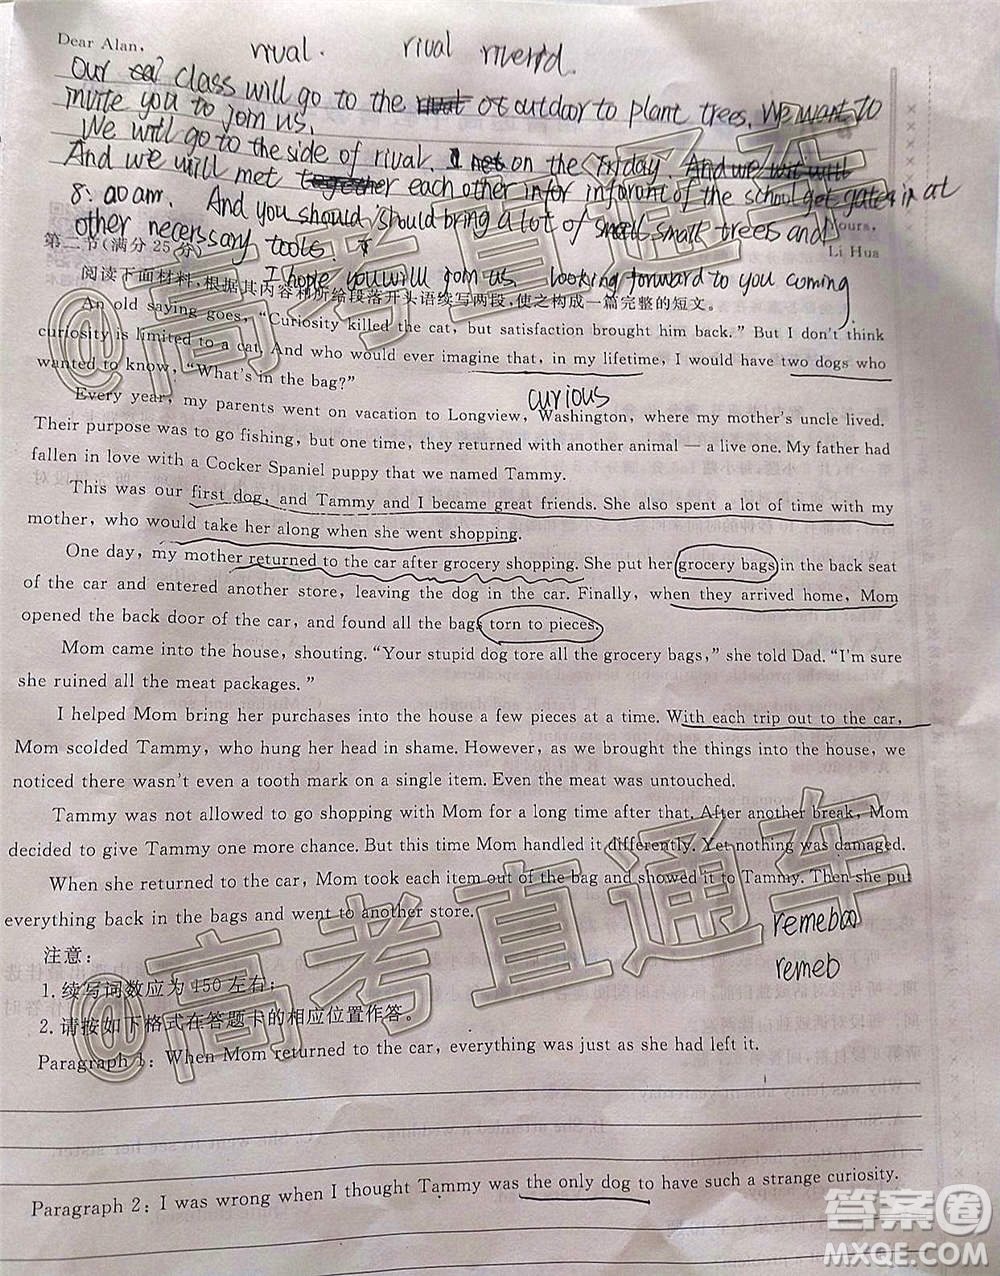 Dear Alan,
rrual. rival riverrd.
Our class will go to the ot outdoor to plant trees. We want to
invite you to join us.
We will go to the side of rival. I not on the Friday. And we will
And we will met together each other infor inforont of the school get gates in at
8:00 am. And you should should bring a lot of small small trees and
other necerssary tools.
Yours,
Li Hua
I hope you will join us. looking forward to you coming.
第二节(满分 25 分)
阅读下面材料,根据其内容和所给段落开头语续写两段,使之构成一篇完整的短文。
An old saying goes, "Curiosity killed the cat, but satisfaction brought him back." But I don't think
curiosity is limited to a cat. And who would ever imagine that, in my lifetime, I would have two dogs who
wanted to know, "What's in the bag?"
curious
Every year, my parents went on vacation to Longview, Washington, where my mother's uncle lived.
Their purpose was to go fishing, but one time, they returned with another animal — a live one. My father had
fallen in love with a Cocker Spaniel puppy that we named Tammy.
This was our first dog, and Tammy and I became great friends. She also spent a lot of time with my
mother, who would take her along when she went shopping.
One day, my mother returned to the car after grocery shopping. She put her grocery bags in the back seat
of the car and entered another store, leaving the dog in the car. Finally, when they arrived home, Mom
opened the back door of the car, and found all the bags torn to pieces.
Mom came into the house, shouting. "Your stupid dog tore all the grocery bags," she told Dad. "I'm sure
she ruined all the meat packages."
I helped Mom bring her purchases into the house a few pieces at a time. With each trip out to the car,
Mom scolded Tammy, who hung her head in shame. However, as we brought the things into the house, we
noticed there wasn't even a tooth mark on a single item. Even the meat was untouched.
Tammy was not allowed to go shopping with Mom for a long time after that. After another break, Mom
decided to give Tammy one more chance. But this time Mom handled it differently. Yet nothing was damaged.
When she returned to the car, Mom took each item out of the bag and showed it to Tammy. Then she put
everything back in the bags and went to another store.
remeboo
remeb
注意:
1. 续写词数应为 150 左右;
2. 请按如下格式在答题卡的相应位置作答。
Paragraph 1: When Mom returned to the car, everything was just as she had left it.
Paragraph 2: I was wrong when I thought Tammy was the only dog to have such a strange curiosity.
@高考直通车
@高考直通车
答案圈
MXQE.COM